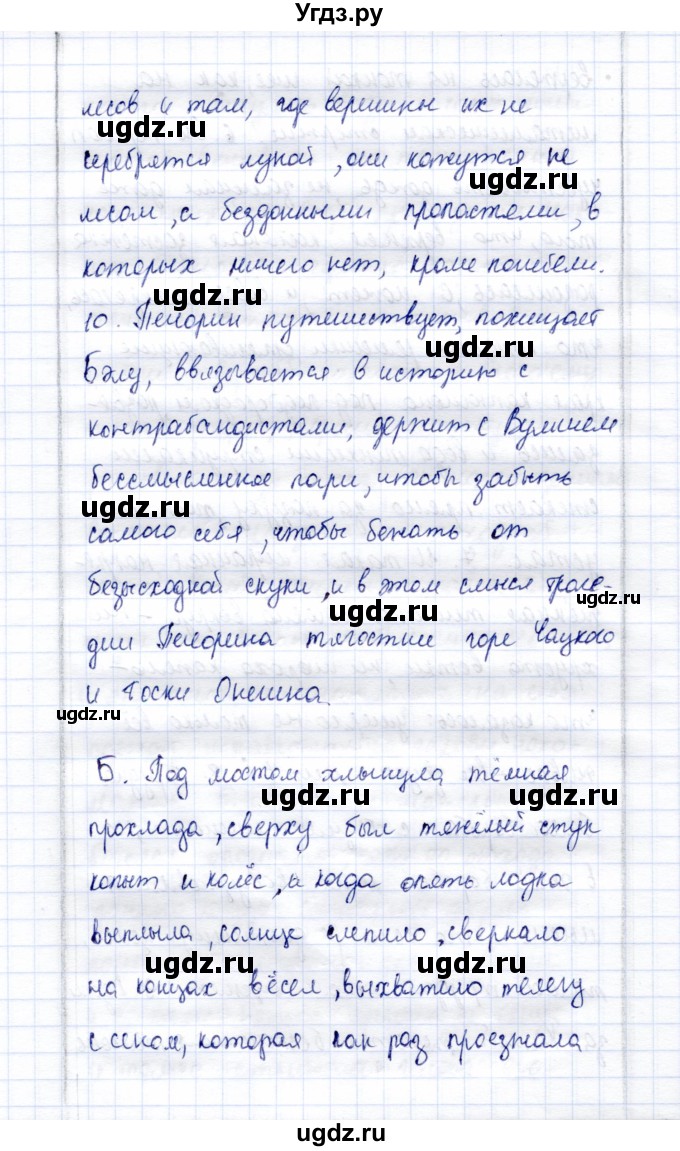 Угдз.ру
лесов и там, где вершины их не
ugdz.ru
серебрятся луной, они кажутся не
ugdz.ru
лесом, а бездонными пропастями, в
которых ничего нет, кроме погибели.
ugdz.ru
10. Печорин путешествует, похищает
ugdz.ru
Бэлу, ввязывается в историю с
контрабандистами, держит с Вуличем
бессмысленное пари, чтобы забыть
ugdz.ru
самого себя, чтобы бежать от
безысходной скуки, и в этом смысл траге-
ugdz.ru
ugdz.ru
дии Печорина тягостнее горе Чацкого
и тоски Онегина.
ugdz.ru
Б. Под мостом хлынула тёмная
ugdz.ru
ugdz.ru
прохлада, сверху был тяжёлый стук
копыт и колёс, а когда опять лодка
выплыла, солнце слепило, сверкало
ugdz.ru
ugdz.ru
на концах вёсел, выхватило телегу
с сеном, которая как раз проезжала
ugdz.ru
ugdz.ru
ugdz.ru